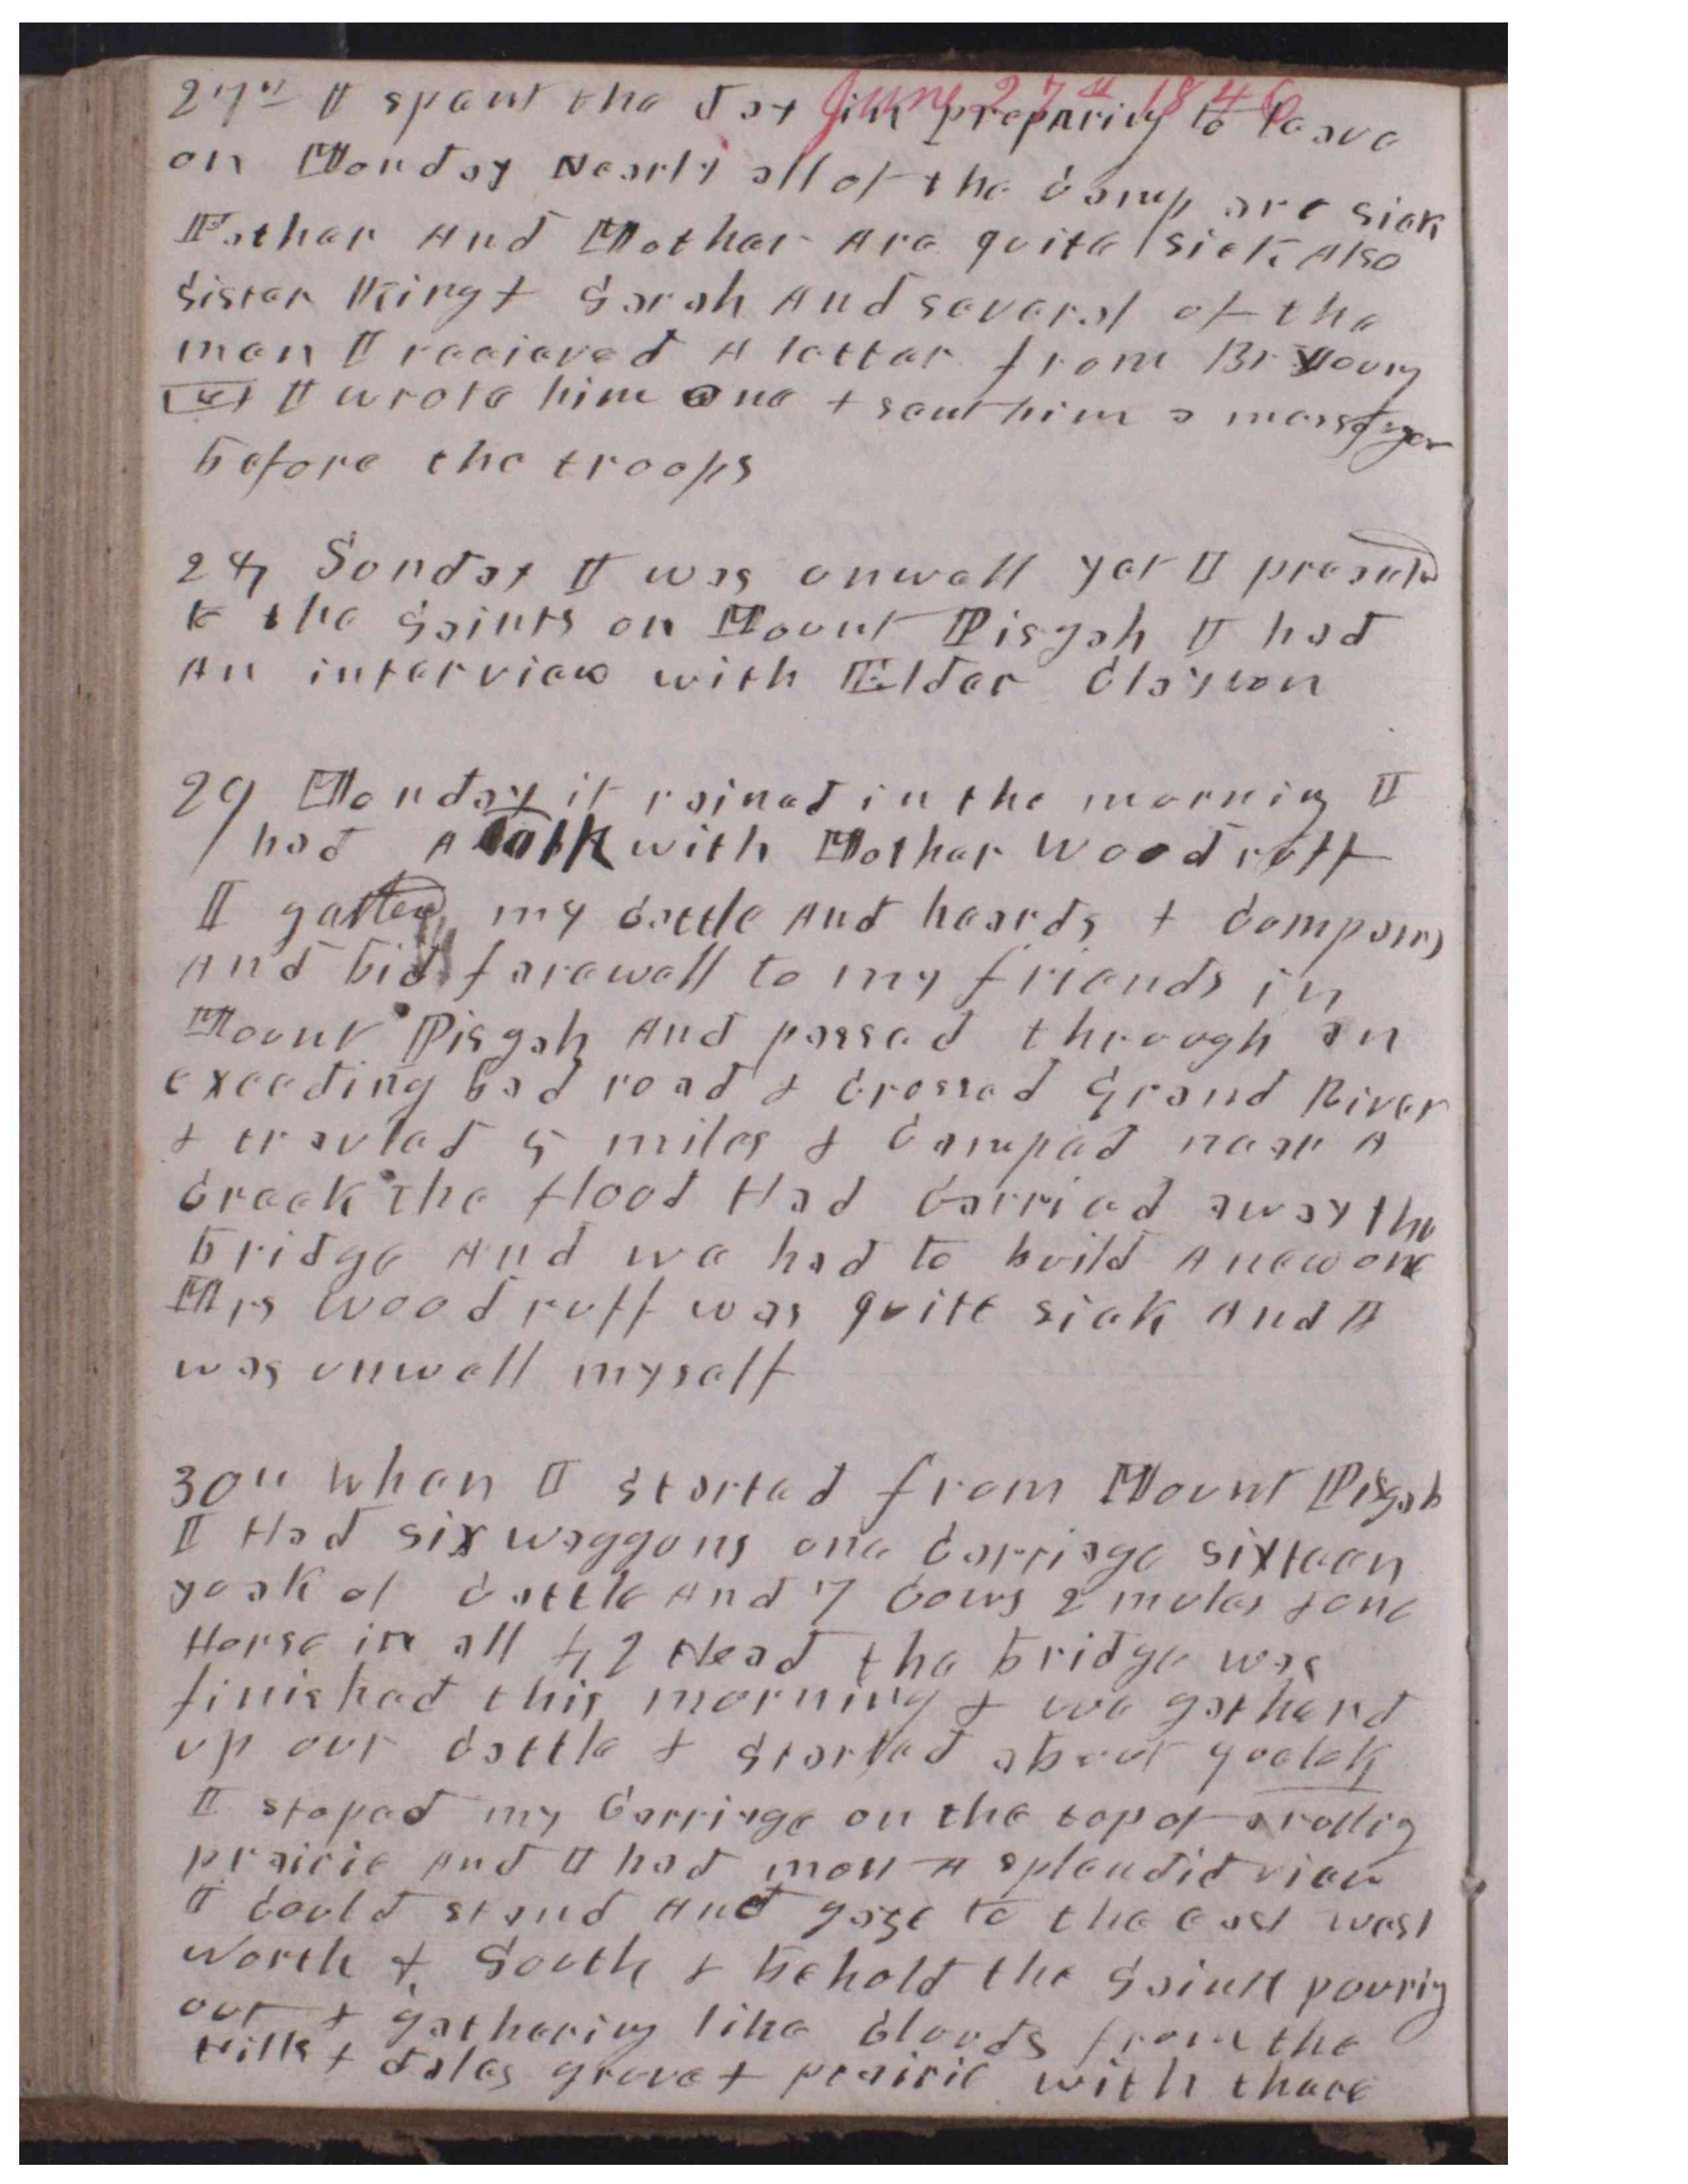 June 27th 1846
27th I spent the day in preparing to leave
on Monday Nearly all of the camp are sick
Father And Mother Are quite sick Also
Sister King & Sarah And several of the
men I recieved A letter from Br Young
I wrote him one & sent him a messenger
before the troops
28 Sunday I was unwell yet I preached
to the Saints on Mount Pisgah I had
An interview with Elder Clayson
29 Monday it rained in the morning I
had A talk with Mother Woodruff
I gatherd my cattle And heards & company
And bid farewell to my friends in
Mount Pisgah And passed through an
exceding bad road & crossed Grand River
& travled 5 miles & camped near A
creek the flood Had carried away the
bridge And we had to build A new one
Mrs Woodruff was quite sick And I
was unwell myself
30th When I started from Mount Pisgah
I Had six waggons one carriage sixteen
yoak of cattle And 7 cows 2 mules & one
Horse in all 42 Head the bridge was
finished this morning & we gatherd
up our cattle & started about 9 oclok
I stoped my carriage on the top of a rollig
prairie And I had most A splendid view
I could stand And gaze to the east west
North & South & behold the Saints pourig
out & gathering like clouds from the
Hills & dales grove & prairie with there